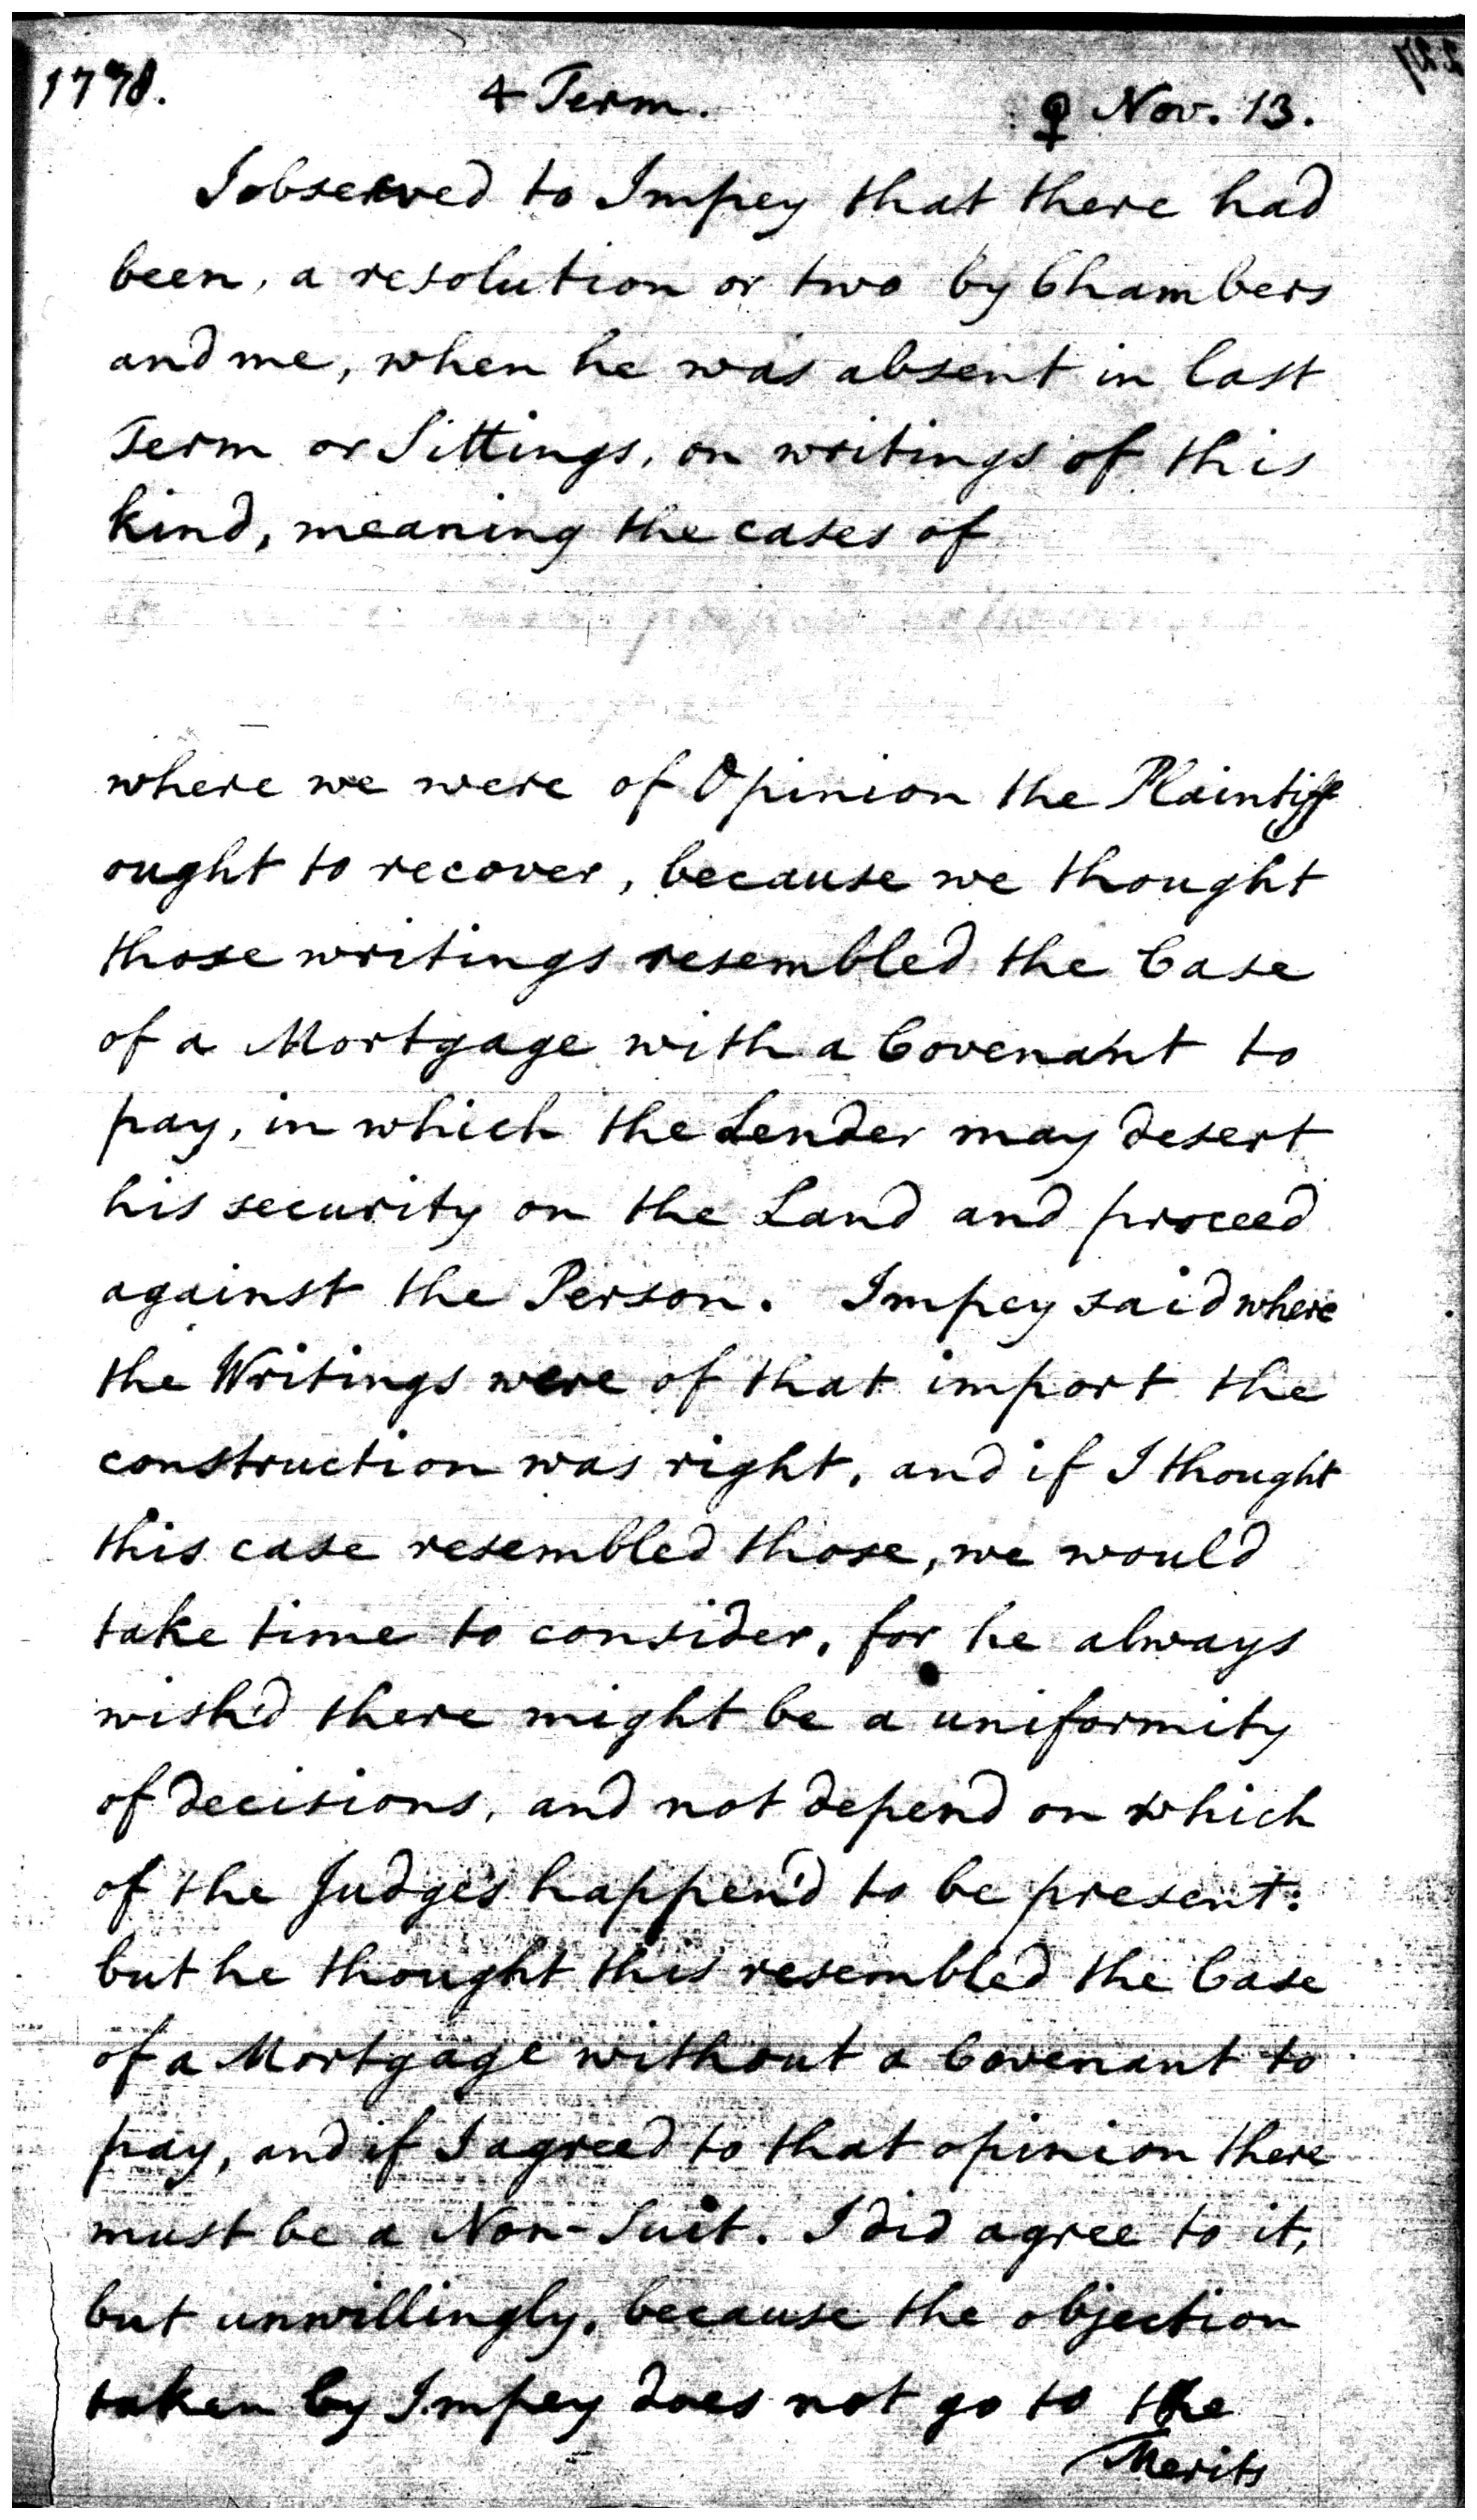 1778. 4 Term. ♀ Nov. 13.
I observed to Impey that there had
been, a resolution or two by Chambers
and me, when he was absent in last
Term or Sittings, on writings of this
kind, meaning the cases of
where we were of Opinion the Plaintiff
ought to recover, because we thought
those writings resembled the Case
of a Mortgage with a Covenant to
pay, in which the Lender may desert
his security on the Land and proceed
against the Person. Impey said where
the Writings were of that import the
construction was right, and if I thought
this case resembled those, we would
take time to consider, for he always
wish'd there might be a uniformity
of decisions, and not depend on which
of the Judges happen'd to be present:
but he thought this resembled the Case
of a Mortgage without a Covenant to
pay, and if I agreed to that opinion there
must be a Non-Suit. I did agree to it,
but unwillingly, because the objection
taken by Impey does not go to the
Merits